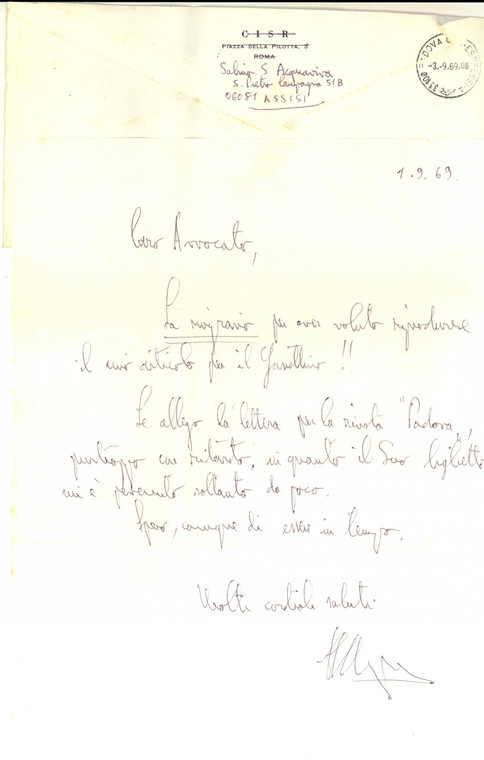 C I S R
PIAZZA DELLA PILOTTA, 3
ROMA
Sabino S Acquaviva
S. Pietro Campagna 51B
06081 ASSISI
PADOVA
-3.-9.69.08
1.9.69.
Caro Avvocato,
La ringrazio per aver voluto riprodurre
il mio articolo per il Gazzettino !!
Le allego la lettera per la rivista "Padova",
purtroppo con ritardo, in quanto il Suo biglietto
mi è pervenuto soltanto da poco.
Spero, comunque di essere in tempo.
Molti cordiali saluti